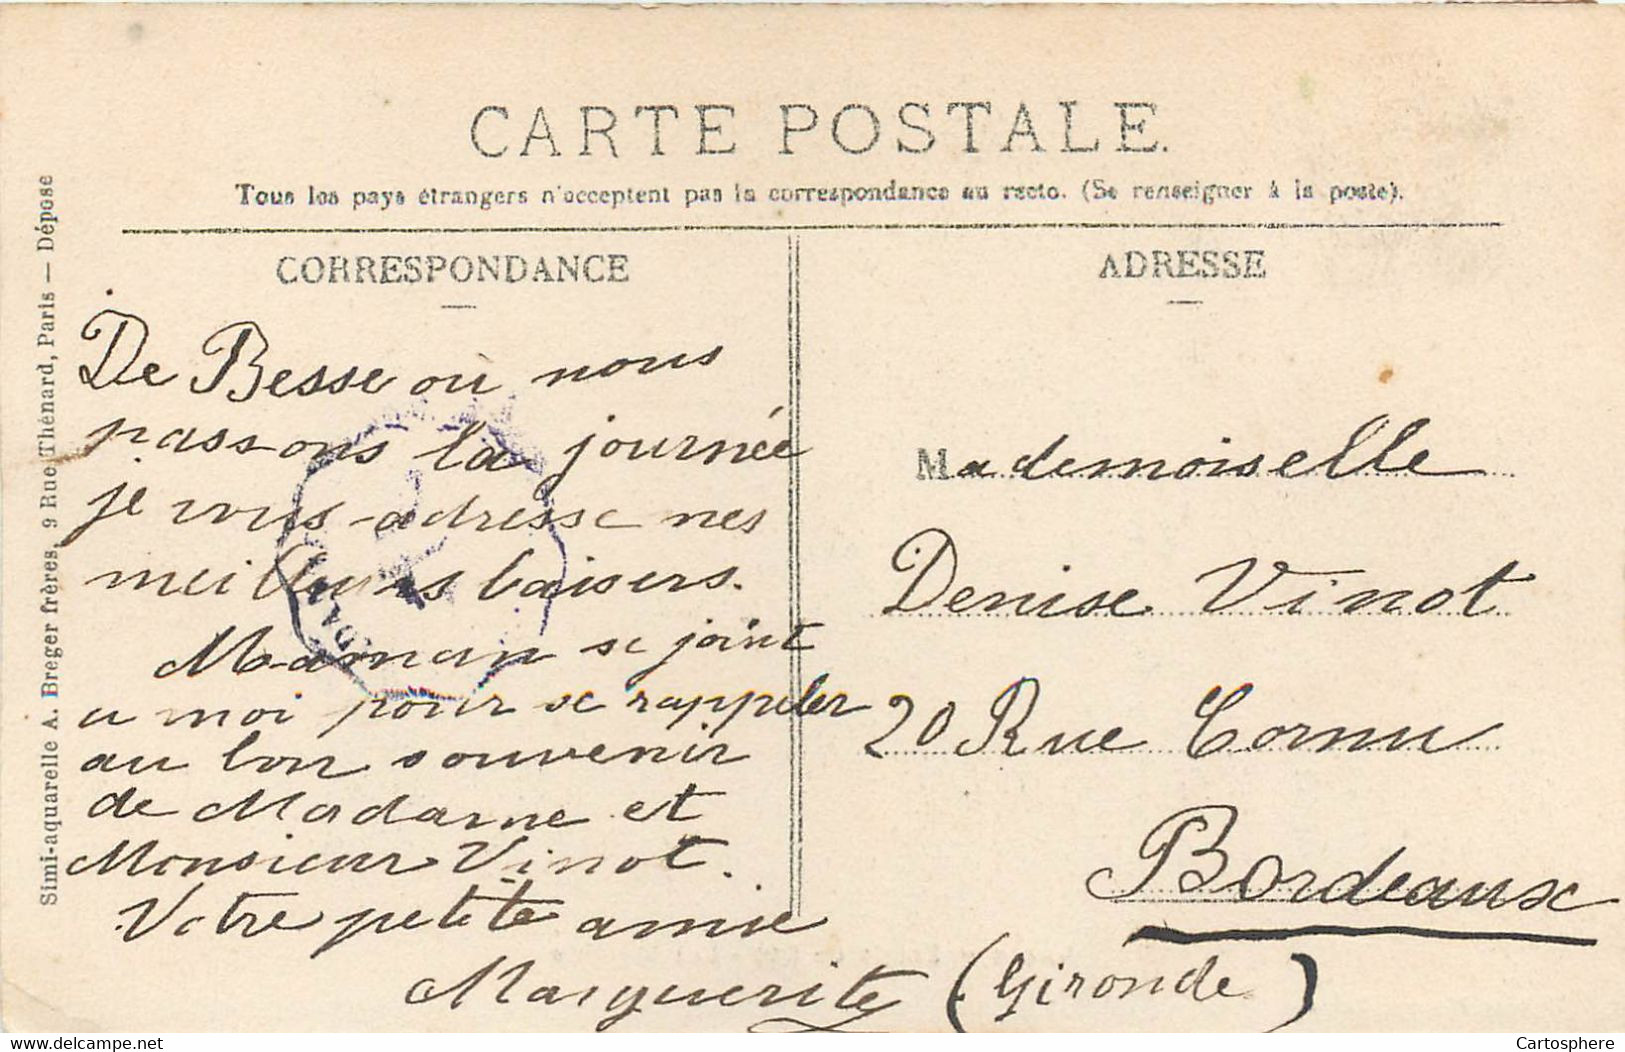 CARTE POSTALE.
Tous les pays étrangers n'acceptent pas la correspondance au recto. (Se renseigner à la poste).
CORRESPONDANCE
De Besse où nous
passons la journée
je vous adresse mes
meilleurs baisers.
Maman se joint
a moi pour se rappeler
au bon souvenir
de Madame et
Monsieur Vinot.
Votre petite amie
Marguerite
ADRESSE
Mademoiselle
Denise Vinot
20 Rue Cornu
Bordeaux
(Gironde)
Simi-aquarelle A. Breger frères, 9 Rue Thénard, Paris — Déposé
www.delcampe.net
Cartosphere